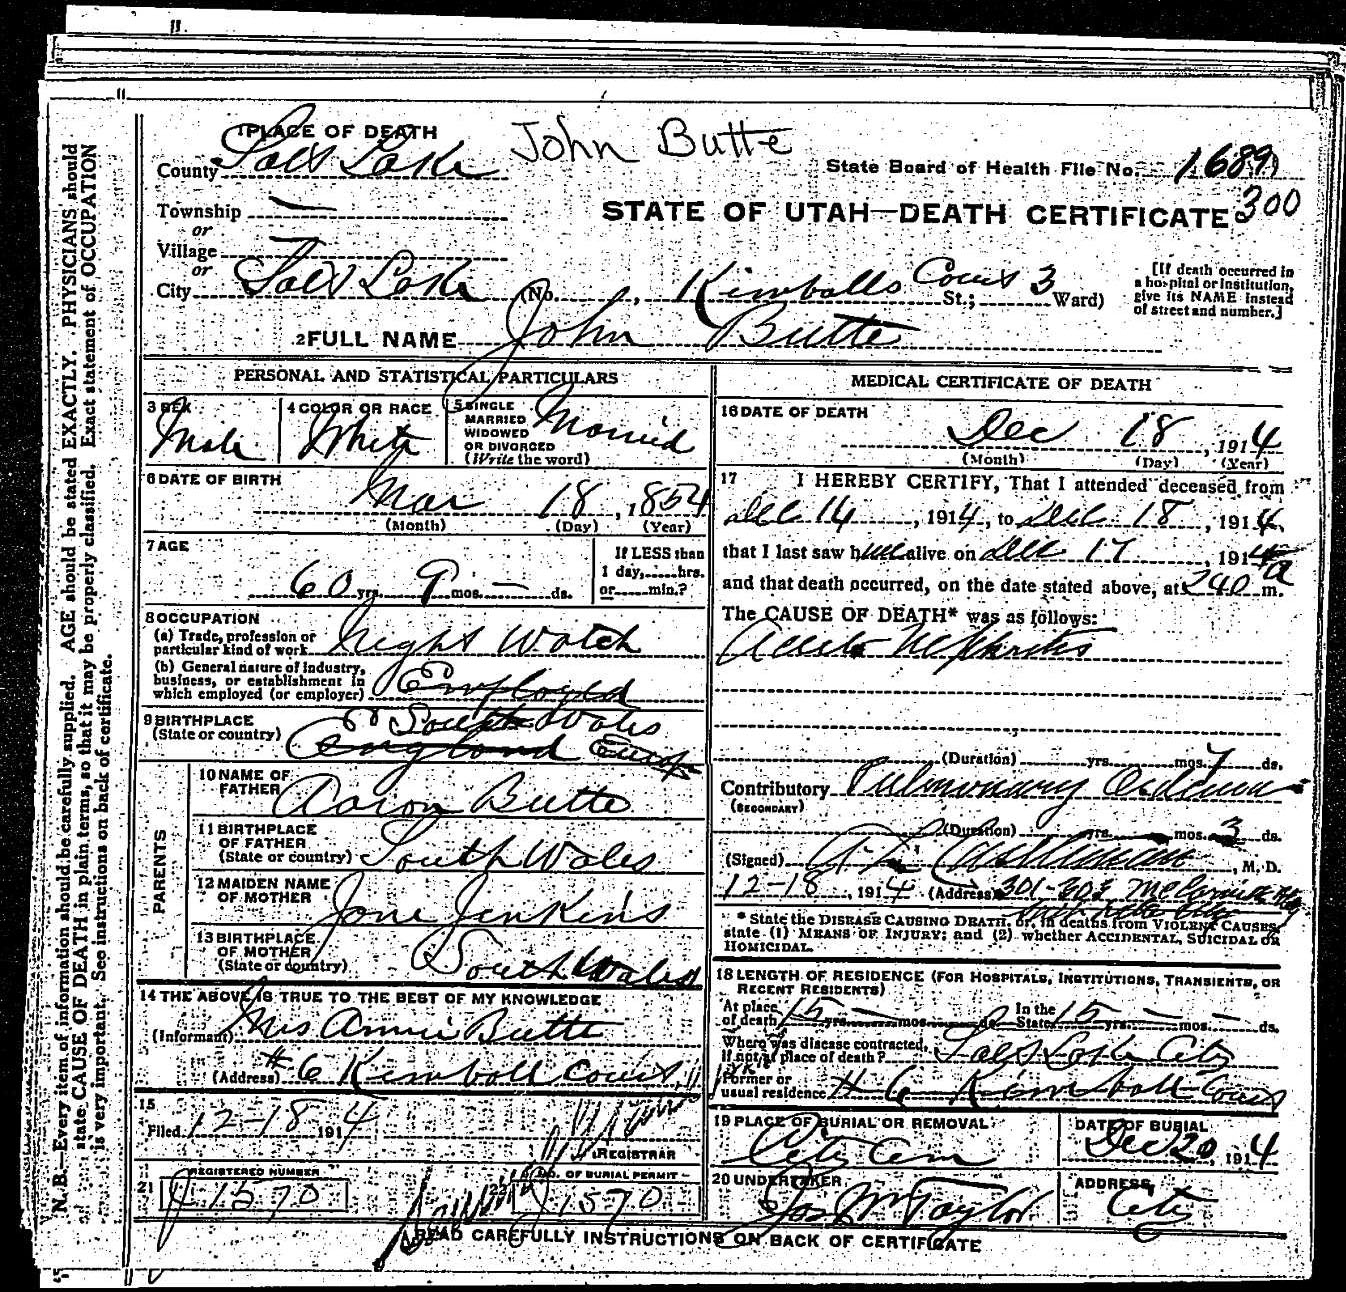 1 PLACE OF DEATH
John Butte
County Salt Lake
State Board of Health File No. 1689
300
Township —
or
STATE OF UTAH—DEATH CERTIFICATE
Village
or
City Salt Lake (No. , Kimballs Court St.; 3 Ward)
[If death occurred in
a hospital or institution,
give its NAME instead
of street and number.]
2 FULL NAME John Butte
PERSONAL AND STATISTICAL PARTICULARS
3 SEX
Male
4 COLOR OR RACE
White
5 SINGLE
MARRIED
WIDOWED
OR DIVORCED
(Write the word)
Married
6 DATE OF BIRTH
Mar 18, 1854
(Month) (Day) (Year)
7 AGE
60 yrs. 9 mos. — ds.
If LESS than
1 day, hrs.
or min.?
8 OCCUPATION
(a) Trade, profession or
particular kind of work Night Watch
(b) General nature of industry,
business, or establishment in
which employed (or employer) Employed
9 BIRTHPLACE
(State or country)
South Wales
England Europe
PARENTS
10 NAME OF
FATHER Aaron Butte
11 BIRTHPLACE
OF FATHER
(State or country) South Wales
12 MAIDEN NAME
OF MOTHER Jane Jenkins
13 BIRTHPLACE
OF MOTHER
(State or country) South Wales
14 THE ABOVE IS TRUE TO THE BEST OF MY KNOWLEDGE
(Informant) Mrs Annie Butte
(Address) #6 Kimball Court
15
Filed 12-18 1914
REGISTRAR
REGISTERED NUMBER
21 J 1570
NO. OF BURIAL PERMIT
J 1570
MEDICAL CERTIFICATE OF DEATH
16 DATE OF DEATH
Dec 18, 1914
(Month) (Day) (Year)
17 I HEREBY CERTIFY, That I attended deceased from
Dec 14, 1914, to Dec 18, 1914,
that I last saw him alive on Dec 17, 1914
and that death occurred, on the date stated above, at 240 a m.
The CAUSE OF DEATH* was as follows:
Acute Nephritis
(Duration) yrs. mos. 7 ds.
Contributory Pulmonary Oedema
(SECONDARY)
(Duration) yrs. mos. 3 ds.
(Signed) , M. D.
12-18, 1914 (Address) 301-303
* State the DISEASE CAUSING DEATH, or, in deaths from VIOLENT CAUSES,
state (1) MEANS OF INJURY; and (2) whether ACCIDENTAL, SUICIDAL OR
HOMICIDAL.
18 LENGTH OF RESIDENCE (FOR HOSPITALS, INSTITUTIONS, TRANSIENTS, OR
RECENT RESIDENTS)
At place
of death 15 yrs. — mos. — ds. In the
State 15 yrs. — mos. — ds.
Where was disease contracted,
if not at place of death? Salt Lake City
Former or
usual residence # 6 Kimball Court
19 PLACE OF BURIAL OR REMOVAL
City Cem
DATE OF BURIAL
Dec 20, 1914
20 UNDERTAKER
Jos Wm Taylor
ADDRESS
City
READ CAREFULLY INSTRUCTIONS ON BACK OF CERTIFICATE
N. B.—Every item of information should be carefully supplied. AGE should be stated EXACTLY. PHYSICIANS should
state CAUSE OF DEATH in plain terms, so that it may be properly classified. Exact statement of OCCUPATION
is very important. See instructions on back of certificate.